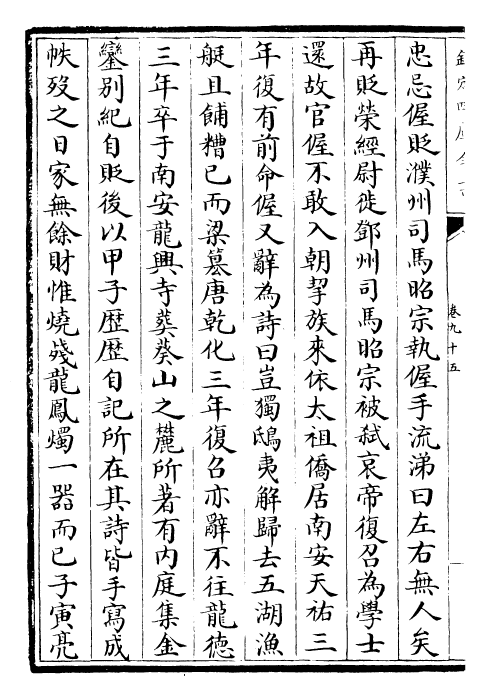 欽定四庫全書
卷九十五
忠忌偓貶濮州司馬昭宗執偓手流涕曰左右無人矣
再貶榮經尉徙鄧州司馬昭宗被弑哀帝復召為學士
還故官偓不敢入朝挈族來依太祖僑居南安天祐三
年復有前命偓又辭為詩曰豈獨鴟夷解歸去五湖漁
艇且餔糟已而梁簒唐乾化三年復召亦辭不往龍德
三年卒于南安龍興寺葬葵山之麓所著有内庭集金
鑾別紀自貶後以甲子歴歴自記所在其詩皆手寫成
帙殁之日家無餘財惟燒殘龍鳳燭一器而已子寅亮